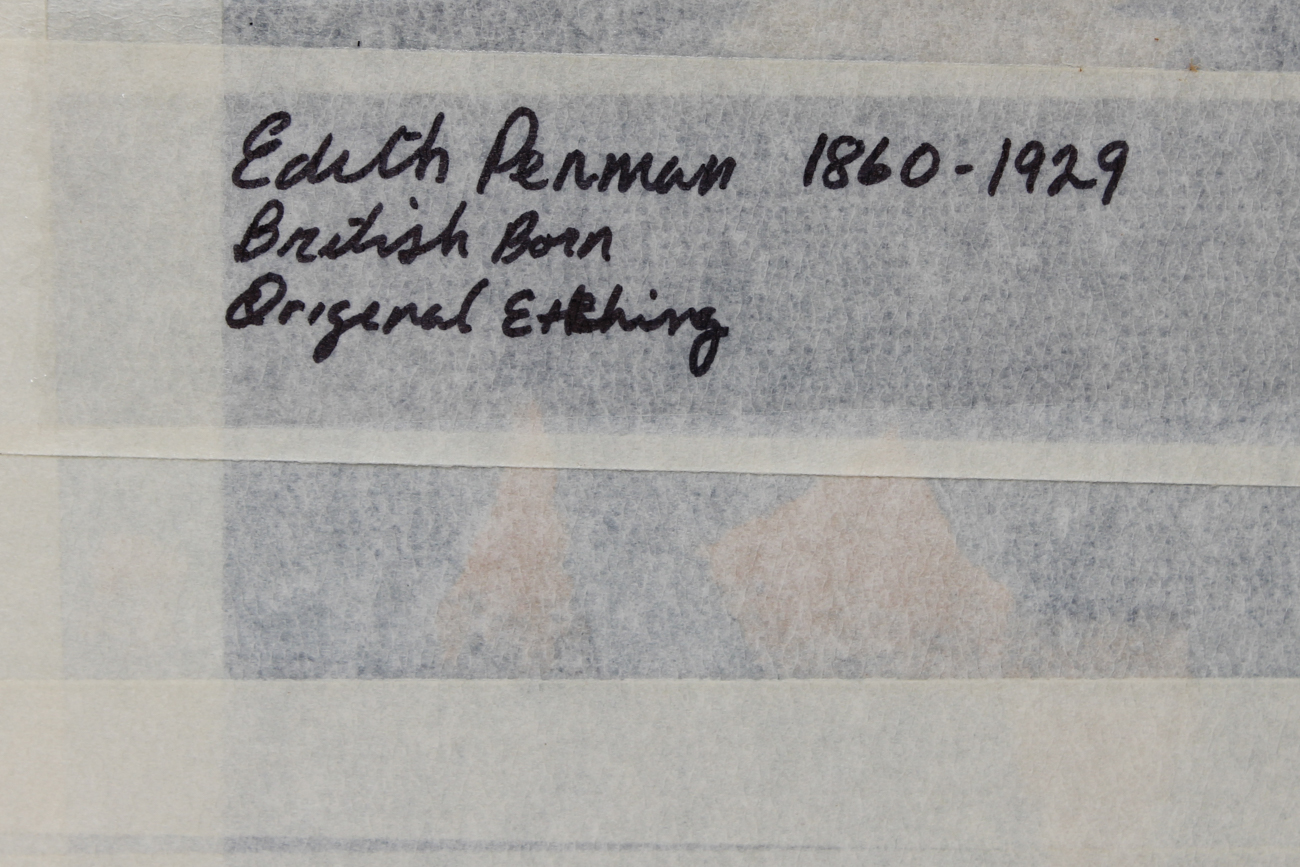 Edith Penman 1860-1929
British Born
Original Etching